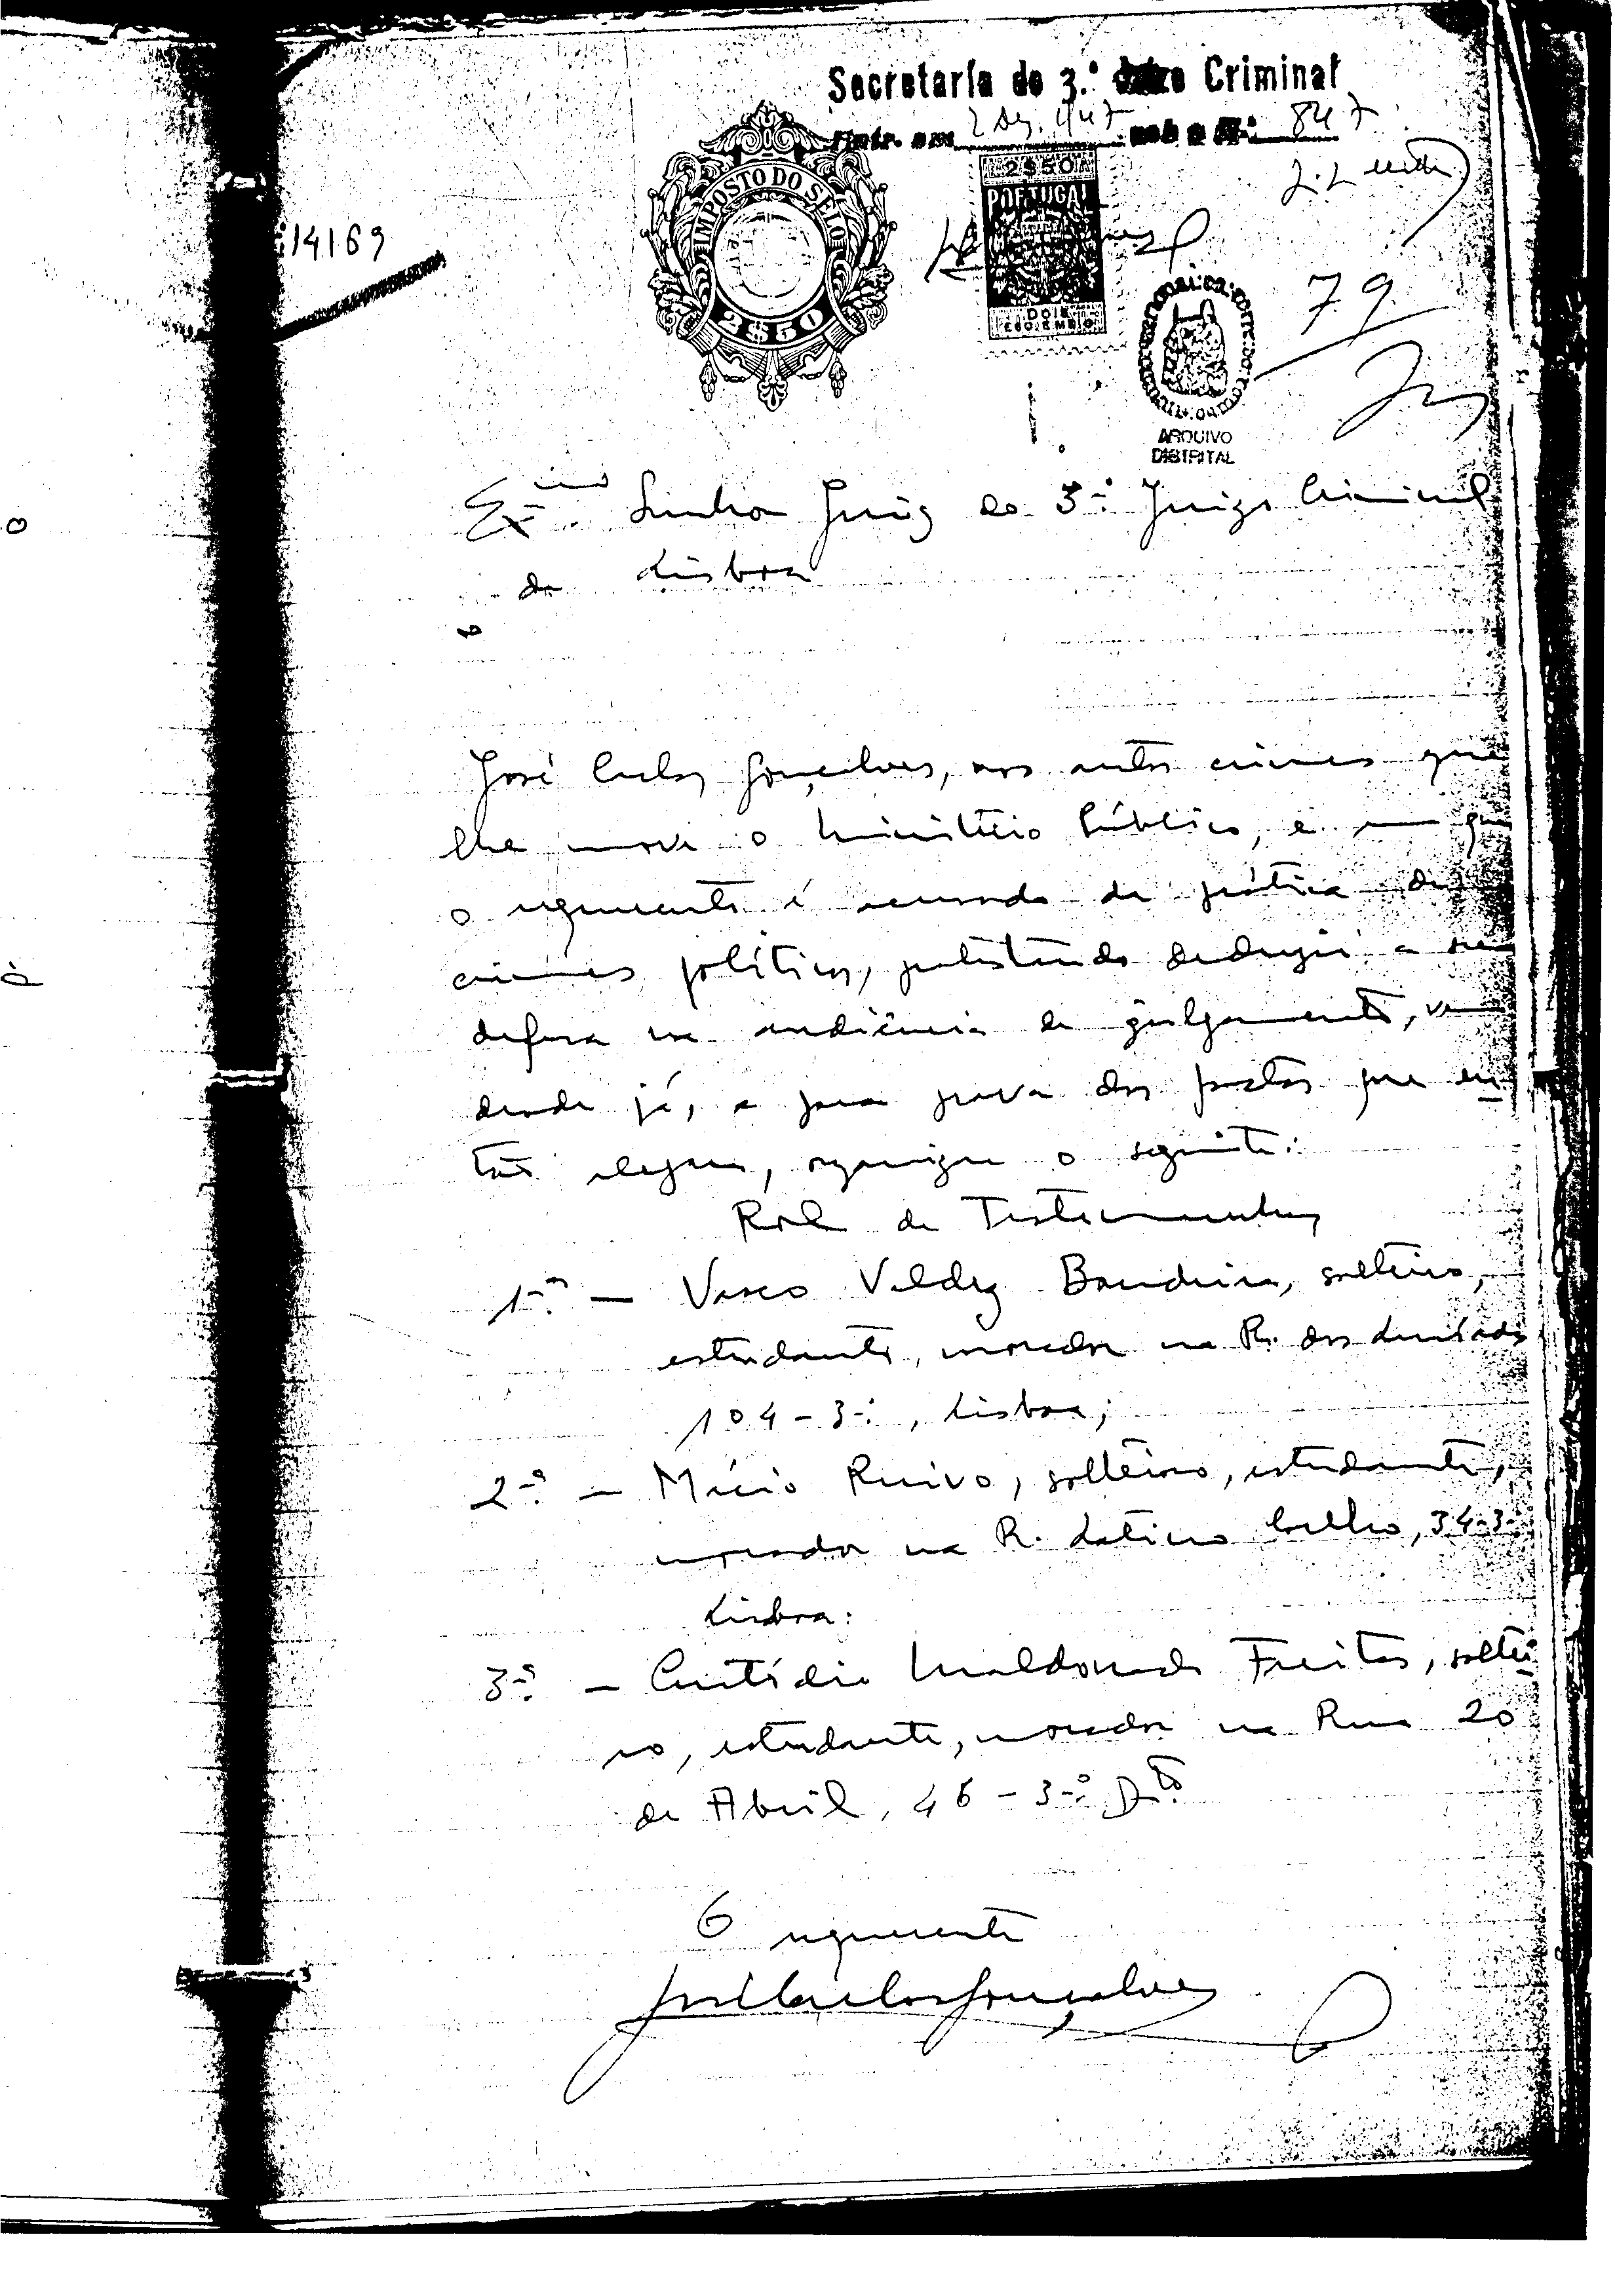 Secretaría do 3.º Juizo Criminal
Entr. em 2 Dez. 947 sob o N.º 847
IMPOSTO DO SELO
2$50
2$50
PORTUGAL
DOIS
ESC. E MEIO
14169
79
ARQUIVO
DISTRITAL
Ex.mo Senhor Juiz do 3.º Juizo Criminal
de Lisboa
José Carlos Gonçalves, nos autos crimes que
lhe move o Ministério Público, e em que
o requerente é acusado da prática de
crimes políticos, protestando deduzir a sua
defesa na audiência de julgamento, vem
desde já, e para prova dos factos que en
tão alegará, organizar o seguinte:
Rol de Testemunhas
1.ª — Vasco Valdez Bandeira, solteiro,
estudante, morador na R. dos Lusíadas
104 - 3.º, Lisboa;
2.ª — Mário Ruivo, solteiro, estudante,
morador na R. Latino Coelho, 34-3.º
Lisboa:
3.ª — Custódio Maldonado Freitas, soltei
ro, estudante, morador na Rua 20
de Abril, 46 - 3.º D.to
O requerente
José Carlos Gonçalves